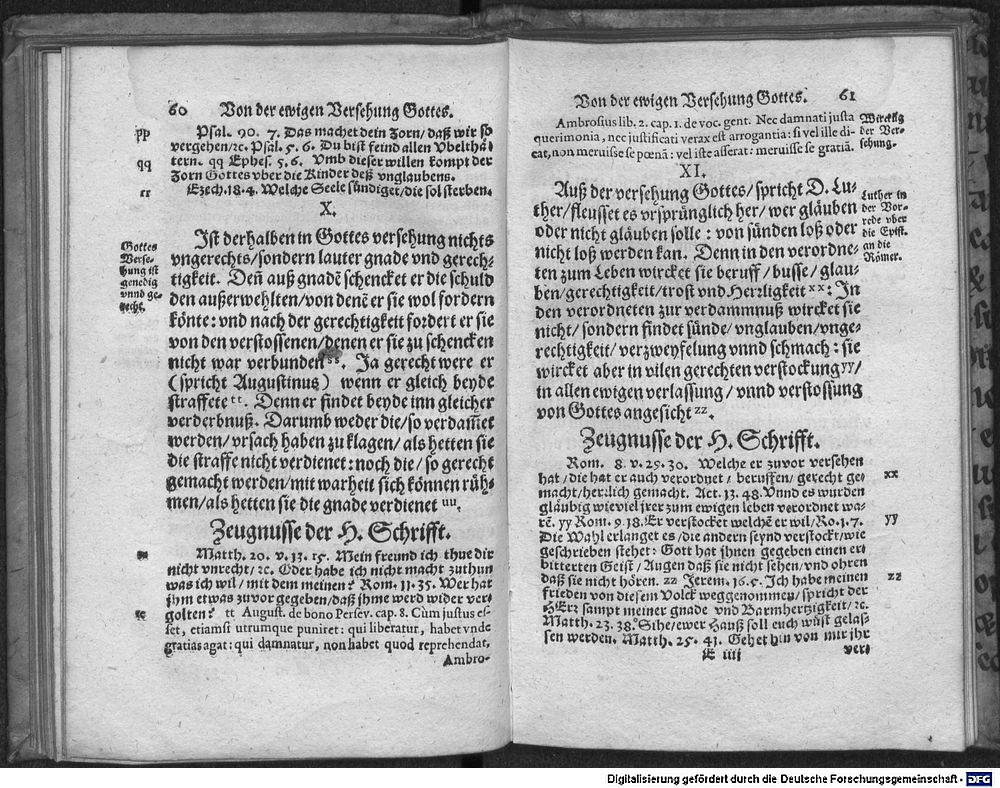 60 Von der ewigen Versehung Gottes.
pp Psal. 90. 7. Das machet dein Zorn/ daß wir so
vergehen/ꝛc. Psal. 5. 6. Du bist feind allen Vbelthä-
qq tern. qq Ephes. 5. 6. Vmb dieser willen kompt der
Zorn Gottes vber die Kinder deß vnglaubens.
rr Ezech. 18. 4. Welche Seele sündiget/die sol sterben.
X.
Ist derhalben in Gottes versehung nichts
Gottes vngerechts/sondern lauter gnade vnd gerech-
Verse- tigkeit. Deñ auß gnadẽ schencket er die schuld
hung ist
genedig den außerwehlten/von denẽ er sie wol fordern
vnnd ge-
recht. könte: vnd nach der gerechtigkeit fordert er sie
von den verstossenen/denen er sie zu schencken
nicht war verbunden ss. Ja gerecht were er
(spricht Augustinus) wenn er gleich beyde
straffete tt. Denn er findet beyde inn gleicher
verderbnuß. Darumb weder die/so verdam̃et
werden/vrsach haben zu klagen/als hetten sie
die straffe nicht verdienet: noch die/so gerecht
gemacht werden/mit warheit sich können rüh-
men/als hetten sie die gnade verdienet uu.
Zeugnusse der H. Schrifft.
Matth. 20. v. 13. 15. Mein freund ich thue dir
nicht vnrecht/ꝛc. Oder habe ich nicht macht zuthun
was ich wil/mit dem meinen? Rom. 11. 35. Wer hat
jhm etwas zuvor gegeben/daß jhme werd wider ver-
golten? tt August. de bono Persev. cap. 8. Cùm justus es-
set, etiamsi utrumque puniret: qui liberatur, habet vnde
gratias agat: qui damnatur, non habet quod reprehendat,
Ambro-
Von der ewigen Versehung Gottes. 61
Ambrosius lib. 2. cap. 1. de voc. gent. Nec damnati justa
querimonia, nec justificati verax est arrogantia: si vel ille di-
cat, non meruisse se pœnã: vel iste asserat: meruisse se gratiã.
Wircklig
der Ver-
sehung.
XI.
Auß der versehung Gottes/spricht D. Lu-
ther/fleusset es vrsprünglich her/wer gläuben
oder nicht gläuben solle: von sünden loß oder
nicht loß werden kan. Denn in den verordne-
Luther in
der Vor-
rede vber
die Epist.
an die
Römer.
ten zum Leben wircket sie beruff/busse/glau-
ben/gerechtigkeit/trost vnd Herrligkeit xx: In
den verordneten zur verdammnuß wircket sie
nicht/sondern findet sünde/vnglauben/vnge-
rechtigkeit/verzweyfelung vnnd schmach: sie
wircket aber in vilen gerechten verstockung yy/
in allen ewigen verlassung/vnnd verstossung
von Gottes angesicht zz.
Zeugnusse der H. Schrifft.
Rom. 8. v. 29. 30. Welche er zuvor versehen
hat/die hat er auch verordnet/beruffen/gerecht ge- xx
macht/herrlich gemacht. Act. 13. 48. Vnnd es wurden
gläubig wieviel jrer zum ewigen leben verordnet wa-
rẽ. yy Rom. 9. 18. Er verstocket welchẽ er wil/Ro. 1. 7. yy
Die Wahl erlanget es/die andern seynd verstockt/wie
geschrieben stehet: Gott hat jhnen gegeben einen er-
bitterten Geist/Augen daß sie nicht sehen/vnd ohren
daß sie nicht hören. zz Jerem. 16. 5. Ich habe meinen zz
frieden von diesem Volck weggenommen/spricht der
HErr sampt meiner gnade vnd Barmhertzigkeit/ꝛc.
Matth. 23. 38. Sihe/ewer Hauß soll euch wüst gelas-
sen werden. Matth. 25. 41. Gehet hin von mir jhr
E iiij ver-
Digitalisierung gefördert durch die Deutsche Forschungsgemeinschaft - DFG